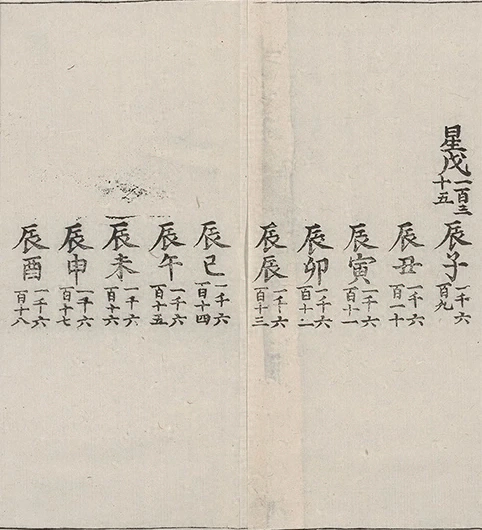 星戊一百三十五辰子一千六百九
辰丑一千六百一十
辰寅一千六百十一
辰卯一千六百十二
辰辰一千六百十三
辰巳一千六百十四
辰午一千六百十五
辰未一千六百十六
辰申一千六百十七
辰酉一千六百十八